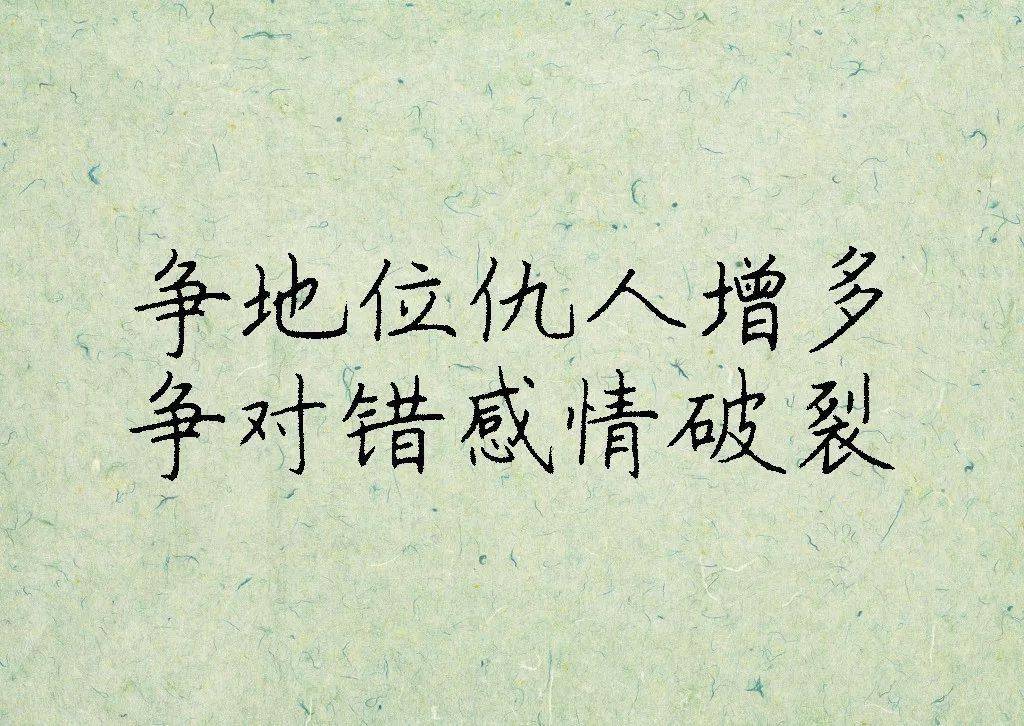 争地位仇人增多
争对错感情破裂